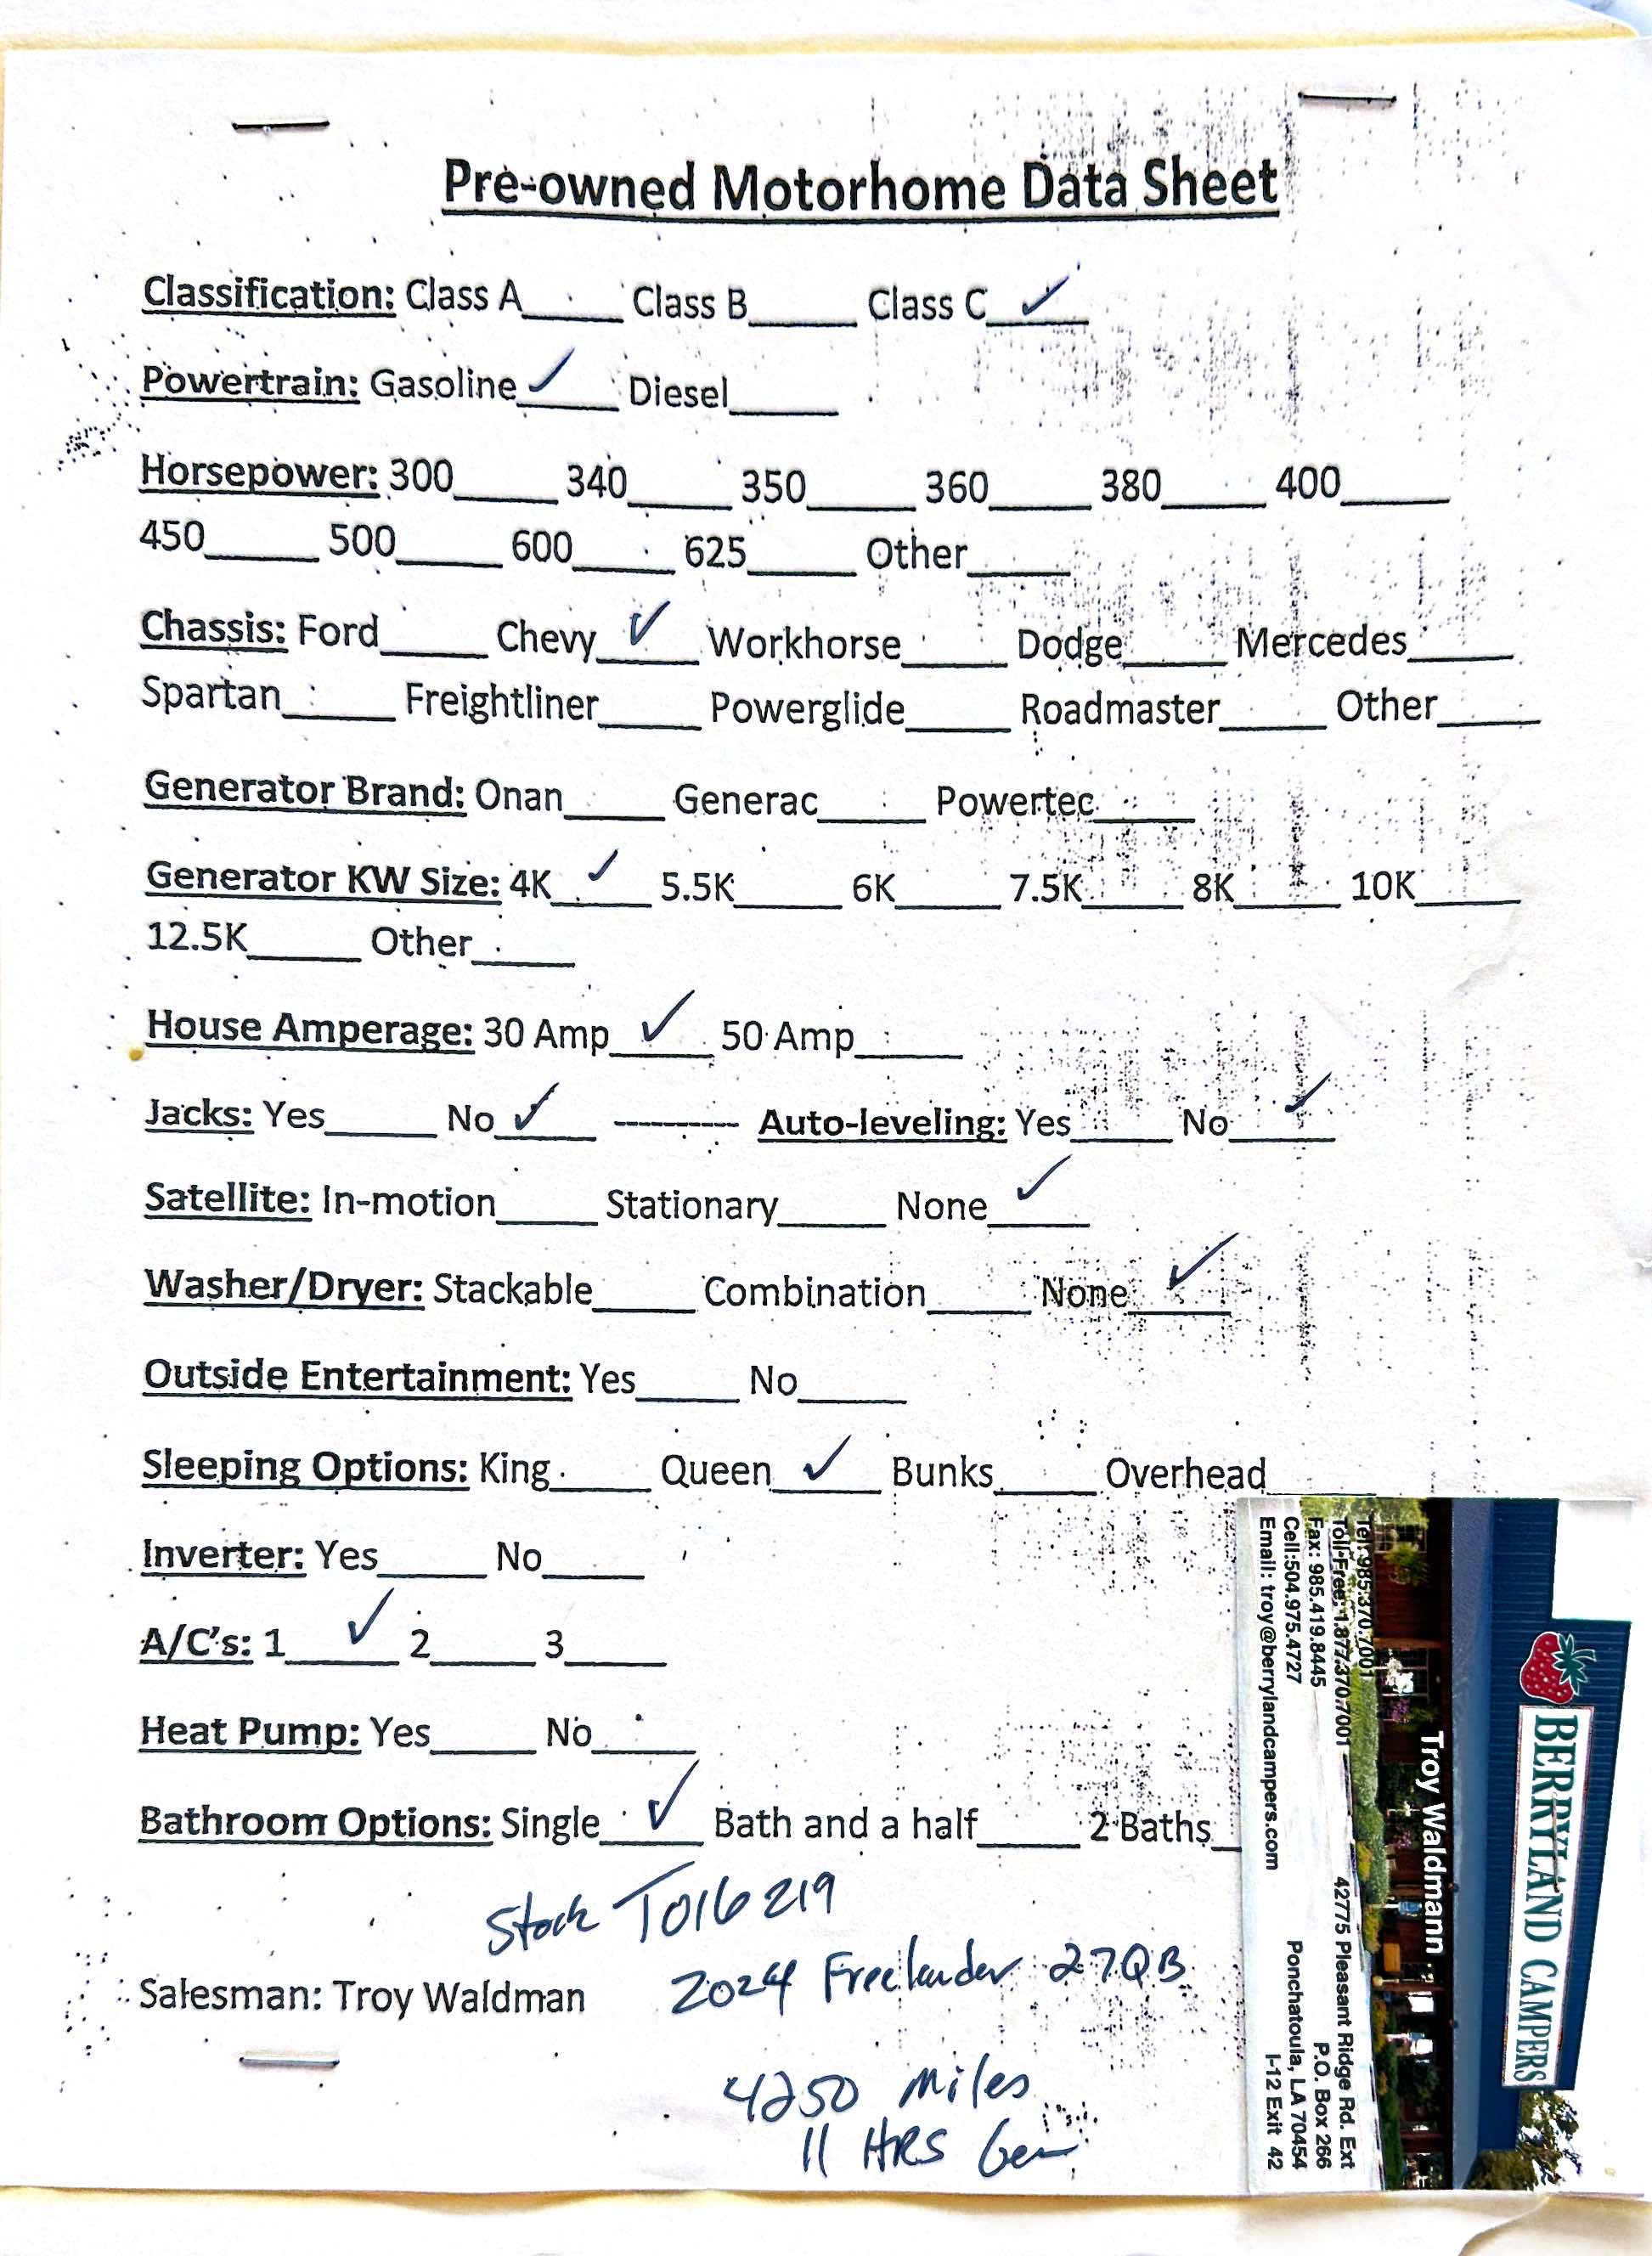 Pre-owned Motorhome Data Sheet
Classification: Class A_____ Class B_____ Class C__✓__
Powertrain: Gasoline__✓__ Diesel_____
Horsepower: 300_____ 340_____ 350_____ 360_____ 380_____ 400_____
450_____ 500_____ 600_____ 625_____ Other_____
Chassis: Ford_____ Chevy__✓__ Workhorse_____ Dodge_____ Mercedes_____
Spartan_____ Freightliner_____ Powerglide_____ Roadmaster_____ Other_____
Generator Brand: Onan_____ Generac_____ Powertec_____
Generator KW Size: 4K__✓__ 5.5K_____ 6K_____ 7.5K_____ 8K_____ 10K_____
12.5K_____ Other_____
House Amperage: 30 Amp__✓__ 50 Amp_____
Jacks: Yes_____ No__✓__ ---------- Auto-leveling: Yes_____ No__✓__
Satellite: In-motion_____ Stationary_____ None__✓__
Washer/Dryer: Stackable_____ Combination_____ None__✓__
Outside Entertainment: Yes_____ No_____
Sleeping Options: King_____ Queen__✓__ Bunks_____ Overhead_____
Inverter: Yes_____ No_____
A/C's: 1__✓__ 2_____ 3_____
Heat Pump: Yes_____ No_____
Bathroom Options: Single__✓__ Bath and a half_____ 2 Baths_
Stock T016219
Salesman: Troy Waldman 2024 Freelander 27QB
4250 miles
11 HRS Gen
BERRYLAND CAMPERS
Troy Waldmann
Tel: 985.370.7001
Toll-Free: 1.877.370.7001
Fax: 985.419.8445
Cell:504.975.4727
Email: troy@berrylandcampers.com
42775 Pleasant Ridge Rd. Ext
P.O. Box 266
Ponchatoula, LA 70454
I-12 Exit 42